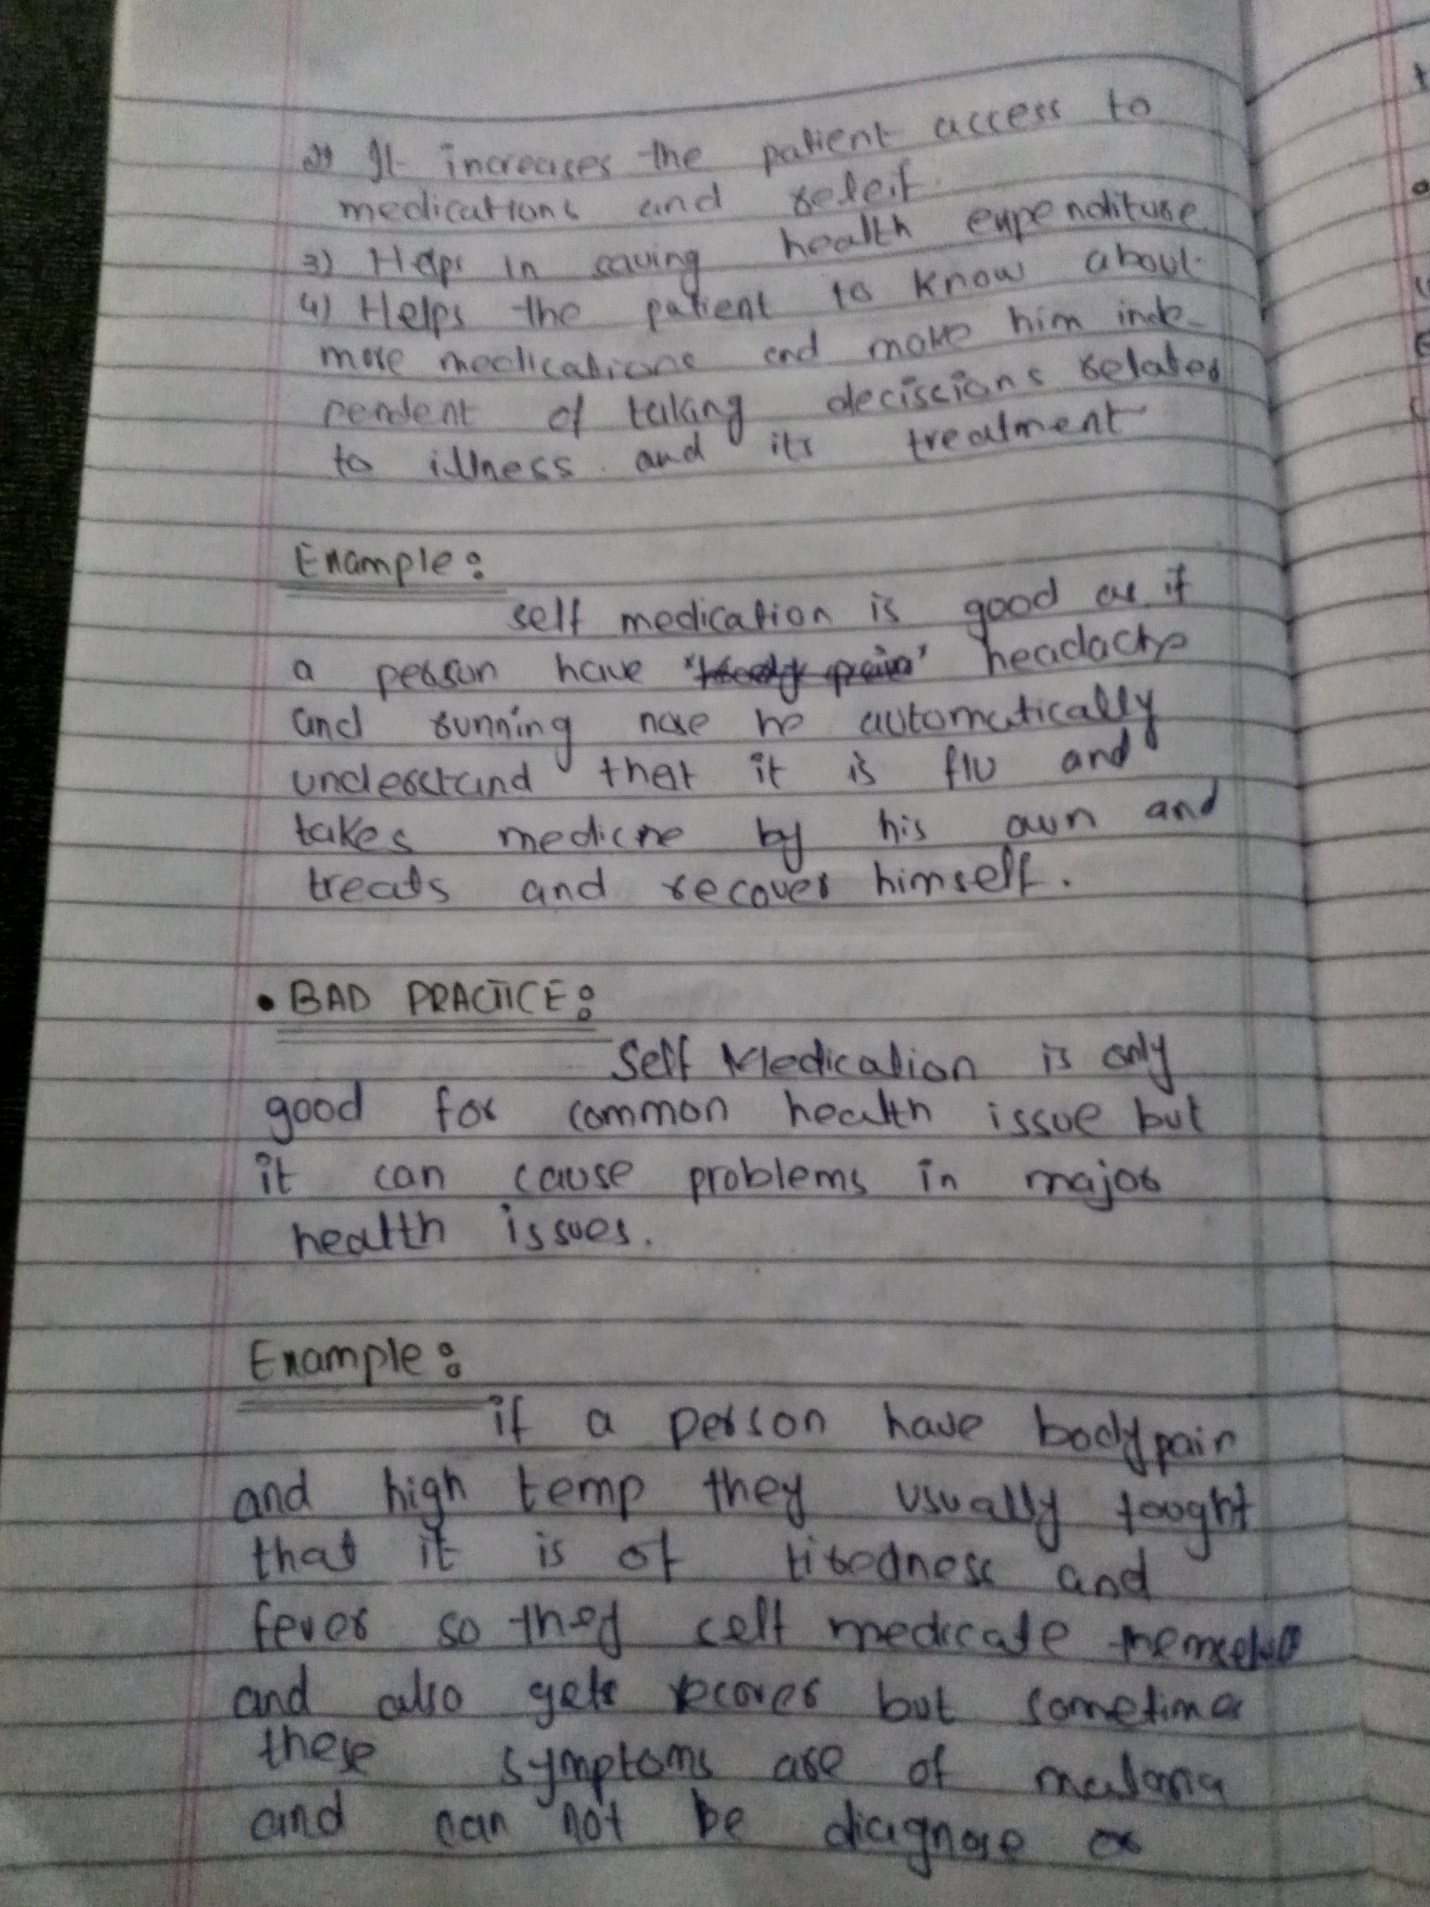 2) It increases the patient access to
medications and releif.
3) Helps in saving health expenditure
4) Helps the patient to know about
more medications and make him inde-
pendent of taking decissions related
to illness and its treatment
Example:
self medication is good as if
a person have "body pain" headache
and running nose he automatically
understand that it is flu and
takes medicne by his own and
treats and recover himself.
• BAD PRACTICE:
Self Medication is only
good for common health issue but
it can cause problems in major
health issues.
Example:
if a person have body pain
and high temp they usually tought
that it is of tiredness and
fever so they self medicate themselve
and also gets recover but sometimes
these symptoms are of malaria
and can not be diagnose or